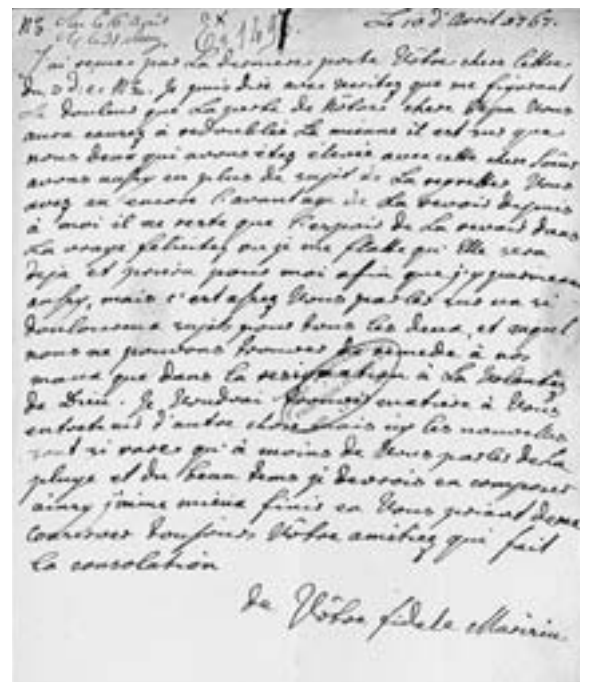 Le 10 d'Avril 1767.
J'ai reçue par La derniere poste Vôtre chere lettre
du Je puis dire avec veritez que me figurant
La douleur que La perte de Nôtre chere Vous
aura causez à redoublée La mienne il est sur que
nous deux qui avons étez élevée avec cette chere Sœur
avons aussy en plus de sujet de La regretter Vous
avez eu encore l'avantage de La revoir depuis
à moi il ne reste que l'espoir de La revoir dans
La vraye felicitez ou je me flatte qu'Elle sera
deja et priera pour moi afin que j'y parvienne
aussy, mais c'est assez Vous parler sur un si
douloureux sujet pour tous les deux, et auquel
nous ne pouvons trouver de remede à nos
maux que dans la resignation à La Volontez
de Dieu. Je Voudrai trouver matiere à Vous
entretenir d'autre chose mais icy les nouvelles
sont si rares qu'à moins de Vous parler de la
pluye et du beau tems je devrois en composer
ainsy j'aime mieux finir en Vous priant de me
conserver toujours Vôtre amitiez qui fait
La consolation
de Vôtre fidele